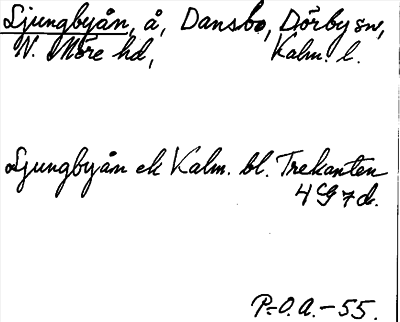 Ljungbyån, å, Dansbo, Dörby sn,
N. Möre hd, Kalm. l.
Ljungbyån ek Kalm. bl. Trekanten
4 G 7 d.
P-O.A.-55.